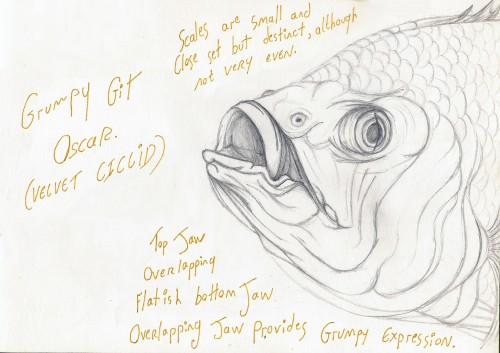 Scales are small and
Close set but destinct, although
not very even.
Grumpy Git
Oscar.
(VELVET CICLID)
Top Jaw
Overlapping
Flatish bottom Jaw
Overlapping Jaw Provides Grumpy Expression.